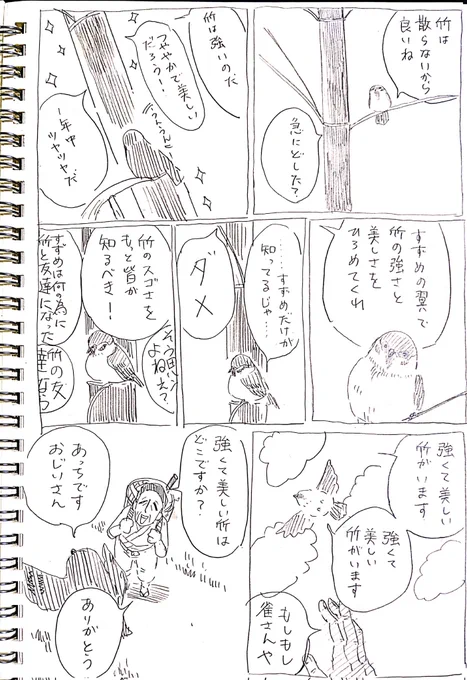 竹は
散らないから
良いね
急にどした?
竹は強いのだ
つややかで美しい
だろう!
うんうん
一年中
ツヤツヤだ
すずめの翼で
竹の強さと
美しさを
ひろめてくれ
……すずめだけが
知ってるじゃ…
ダメ
そう思う
よねえ?
竹のスゴさを
もっと皆が
知るべき!
竹の友
すずめは何の為に
竹と友達になった
強くて美しい
竹がいます
強くて
美しい
竹がいます
もしもし
雀さんや
強くて美しい竹は
どこですか?
あっちです
おじいさん
ありがとう